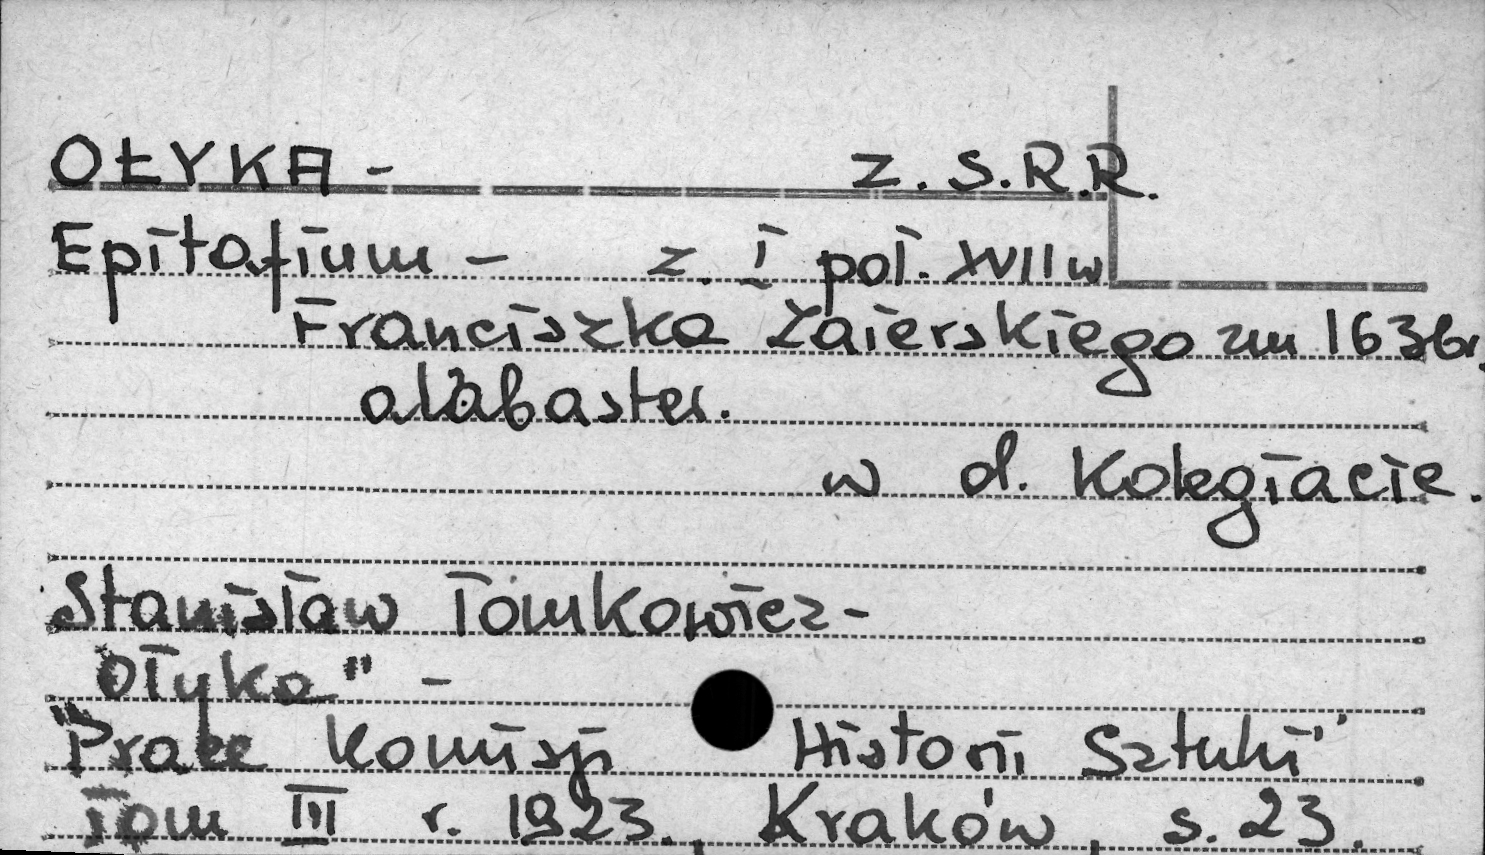 OŁYKA - Z.S.R.R.
Epitafium - z. I poł. XVII w
Franciszka Zaierskiego zm 1636r.
alabaster.
w d. Kolegiacie.
Stanisław Tomkowicz -
"Ołyka" -
"Prace Komisji Historii Sztuki"
Tom III r. 1923. Kraków, s. 23.